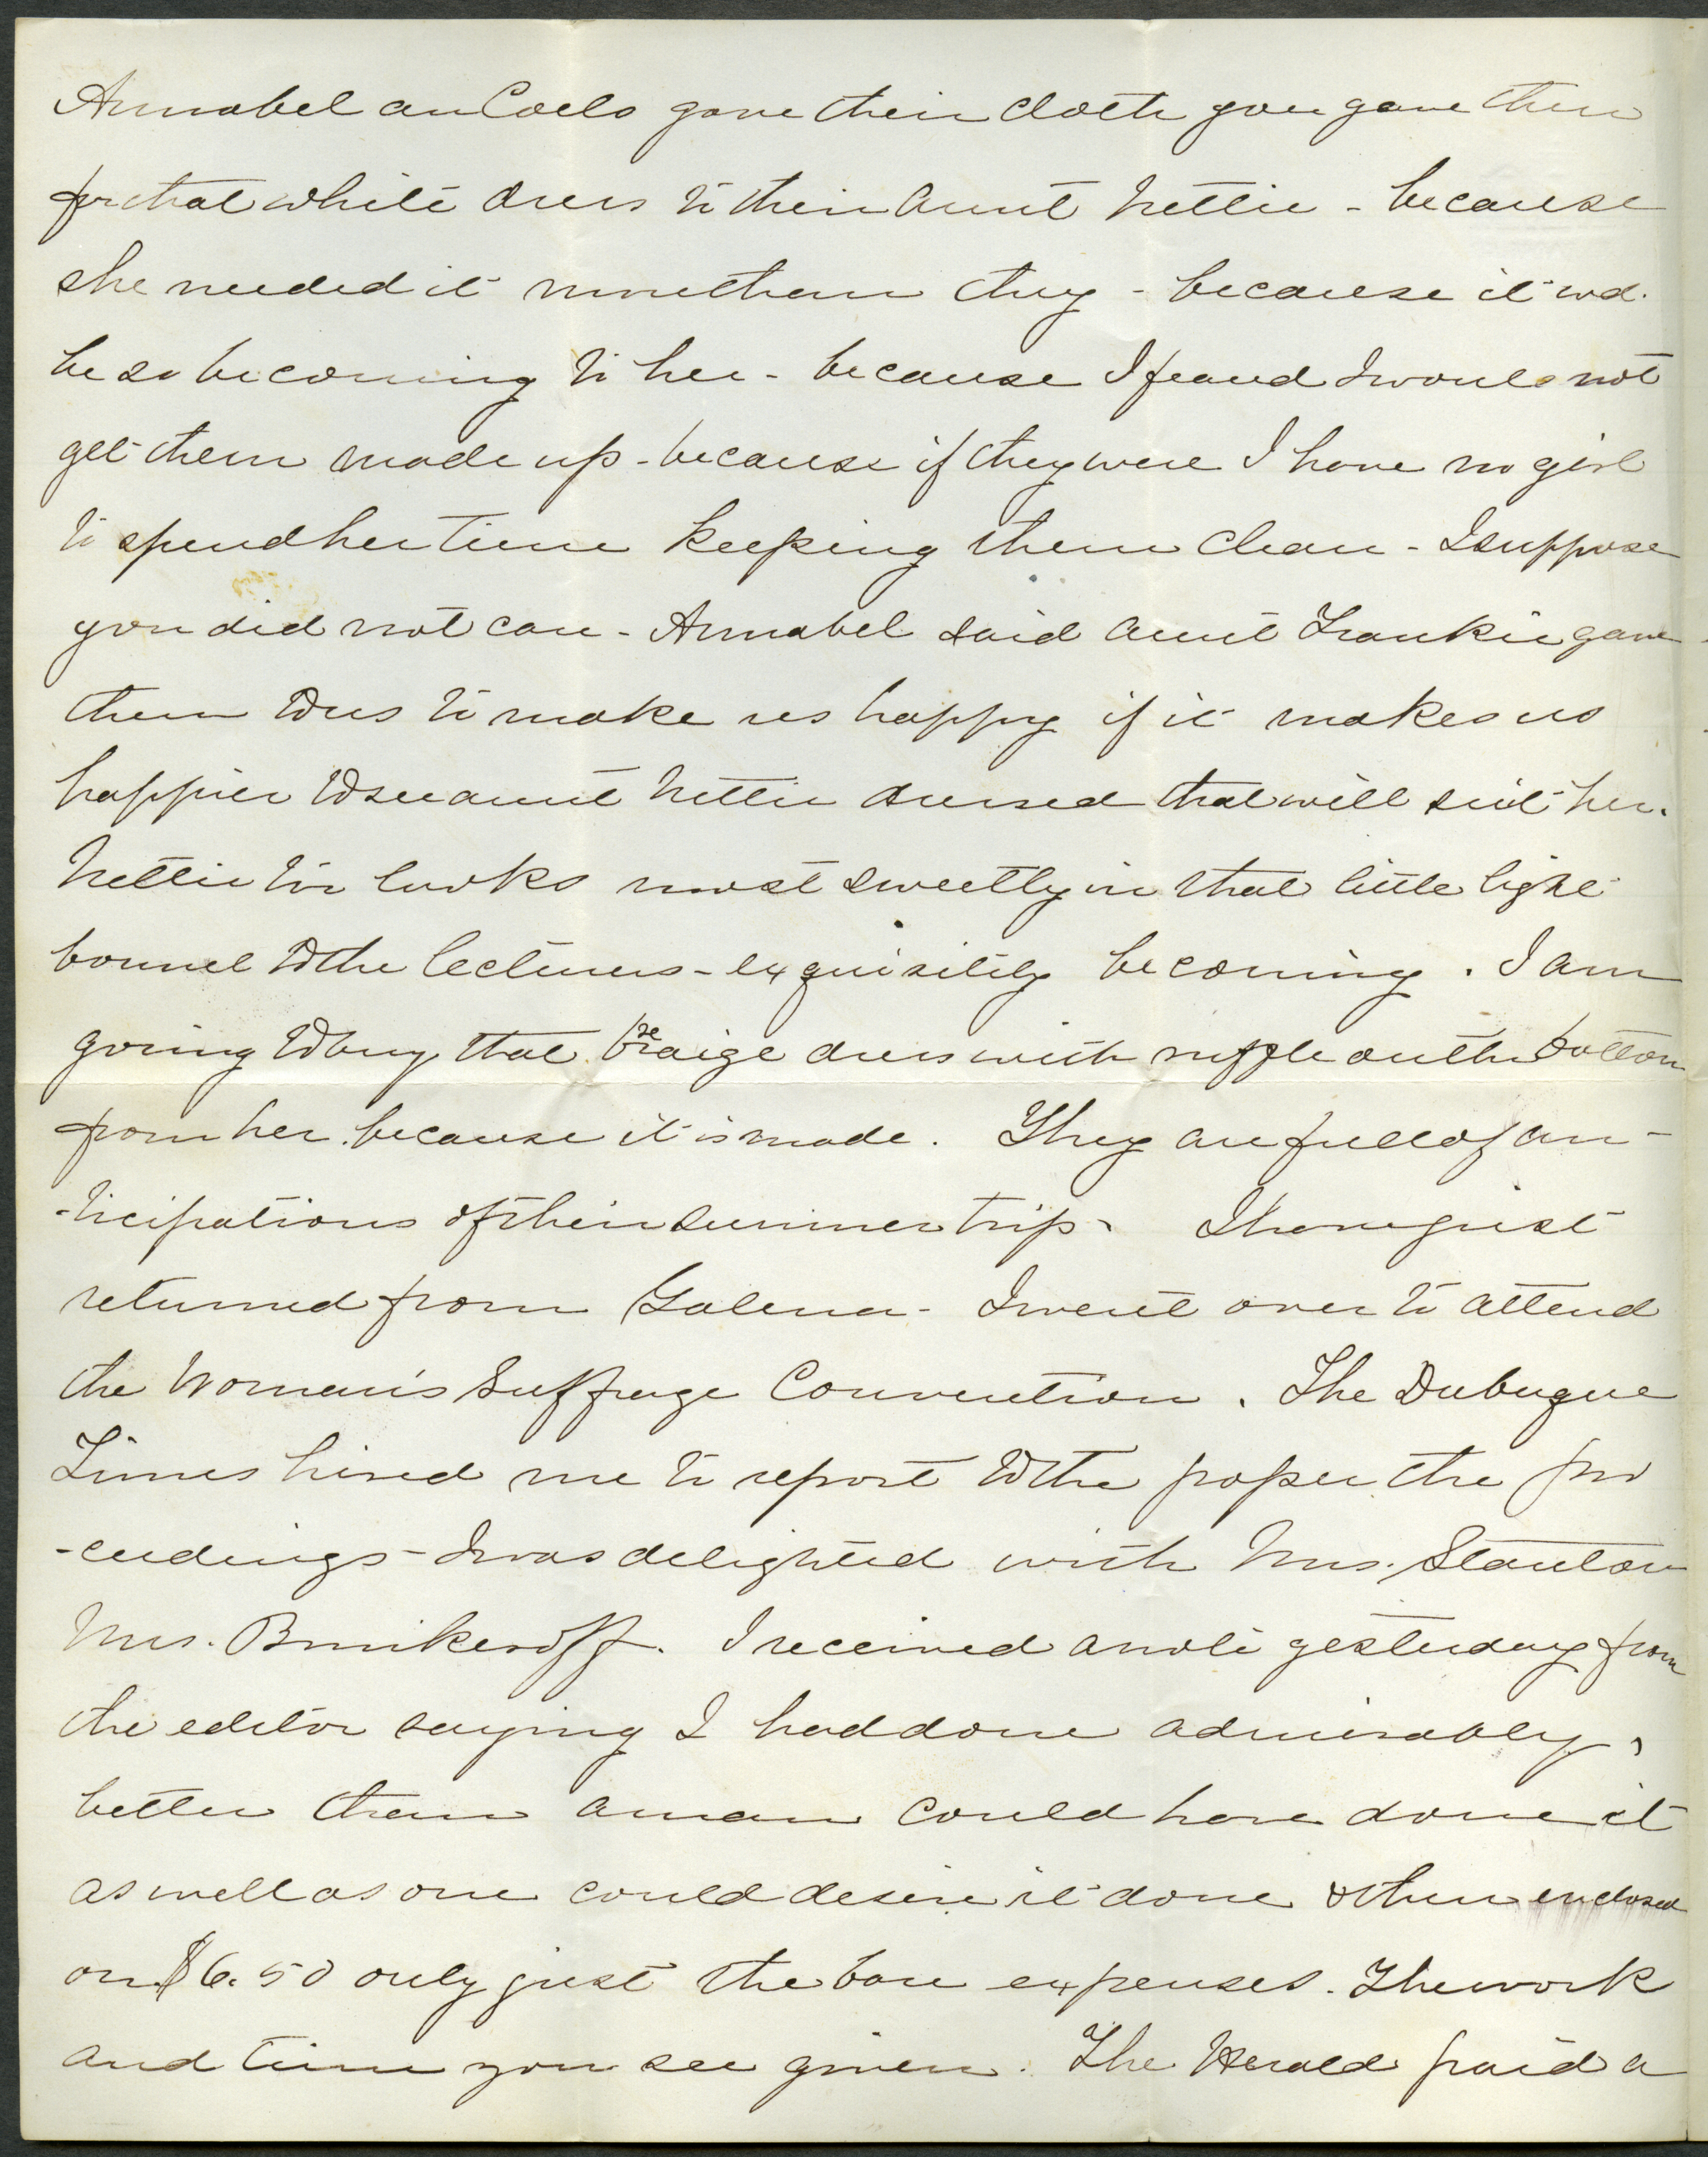 Annabel an Coelo gave their cloth you gave them
for that white dress to their Aunt Nettie - because
she needed it more than they - because it wd.
be so becoming to her - because I feared I would not
get them made up - because if they were I have no girl
to spend her time keeping them clean - I suppose
you did not care - Annabel said Aunt Frankie gave
them to us to make us happy if it makes us
happier to see aunt Nettie dressed that will suit her.
Nettie too looks most sweetly in that little light
bonnet to the lectures - exquisitely becoming. I am
going to buy that baraige dress with ruffle on the bottom
from her because it is made. They are full of an-
-ticipations of their summer trip - I have just
returned from Galena - I went over to attend
the Woman's Suffrage Convention. The Dubuque
Times hired me to report to the paper the pro
-ceedings - I was delighted with Mrs. Stanton
Mrs. Brinkeroff. I received a note yesterday from
the editor saying I had done admirably,
better than a man could have done it
as well as one could desire it done & then enclosed
on $6.50 only just the bare expenses. The work
and time you see given. The Herald paid a